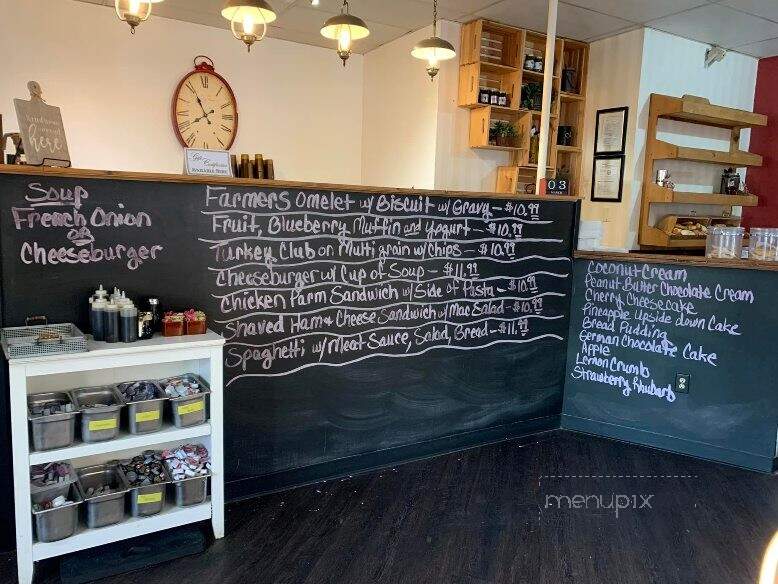 here
Gift Certificates
AVAILABLE HERE
03
Soup
French Onion
or
Cheeseburger
Farmers Omelet w/ Biscuit w/ Gravy - $10.99
Fruit, Blueberry Muffin and Yogurt - $10.99
Turkey Club on Multi grain w/ Chips - $10.99
Cheeseburger w/ Cup of Soup - $11.99
Chicken Parm Sandwich w/ Side of Pasta - $10.99
Shaved Ham & Cheese Sandwich w/ Mac Salad - $10.99
Spaghetti w/ Meat Sauce, Salad, Bread - $11.99
Coconut Cream
Peanut Butter Chocolate Cream
Cherry Cheesecake
Pineapple Upside down Cake
Bread Pudding
German Chocolate Cake
Apple
Lemon Crumb
Strawberry Rhubarb
menupix